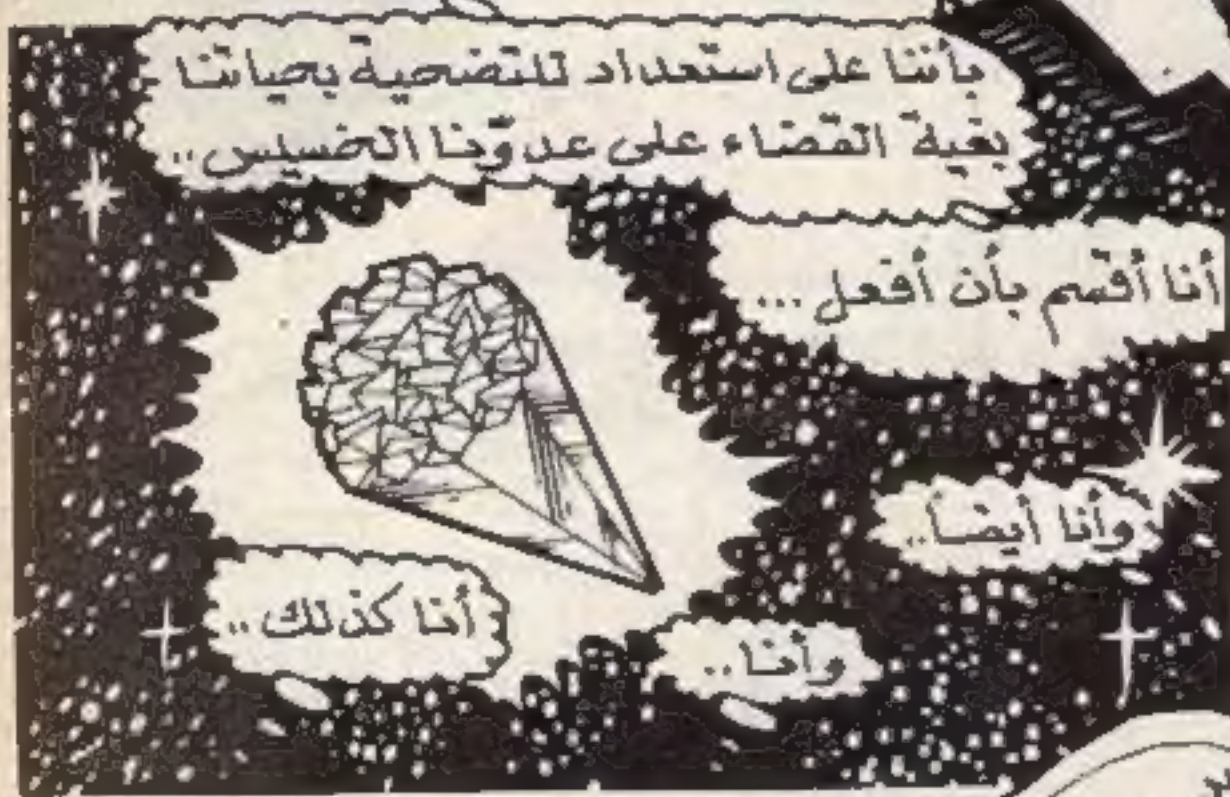 بأننا على استعداد للتضحية بحياتنا
بغية القضاء على عدوّنا الخسيس..
أنا أقسم بأن أفعل...
وأنا أيضاً..
وأنا..
أنا كذلك..